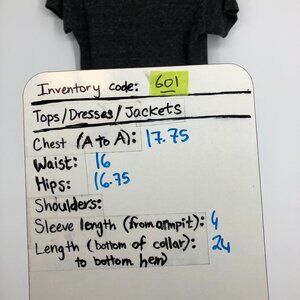 Inventory code: 601
Tops/Dresses/Jackets
Chest (A to A): 17.75
Waist: 16
Hips: 16.75
Shoulders:
Sleeve length (from armpit): 4
Length (bottom of collar): 24
to bottom hem)